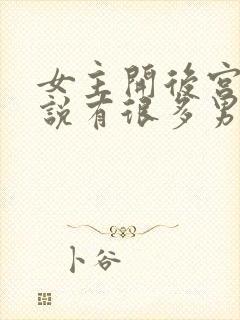 女主開後宮
說有很多男
卜谷